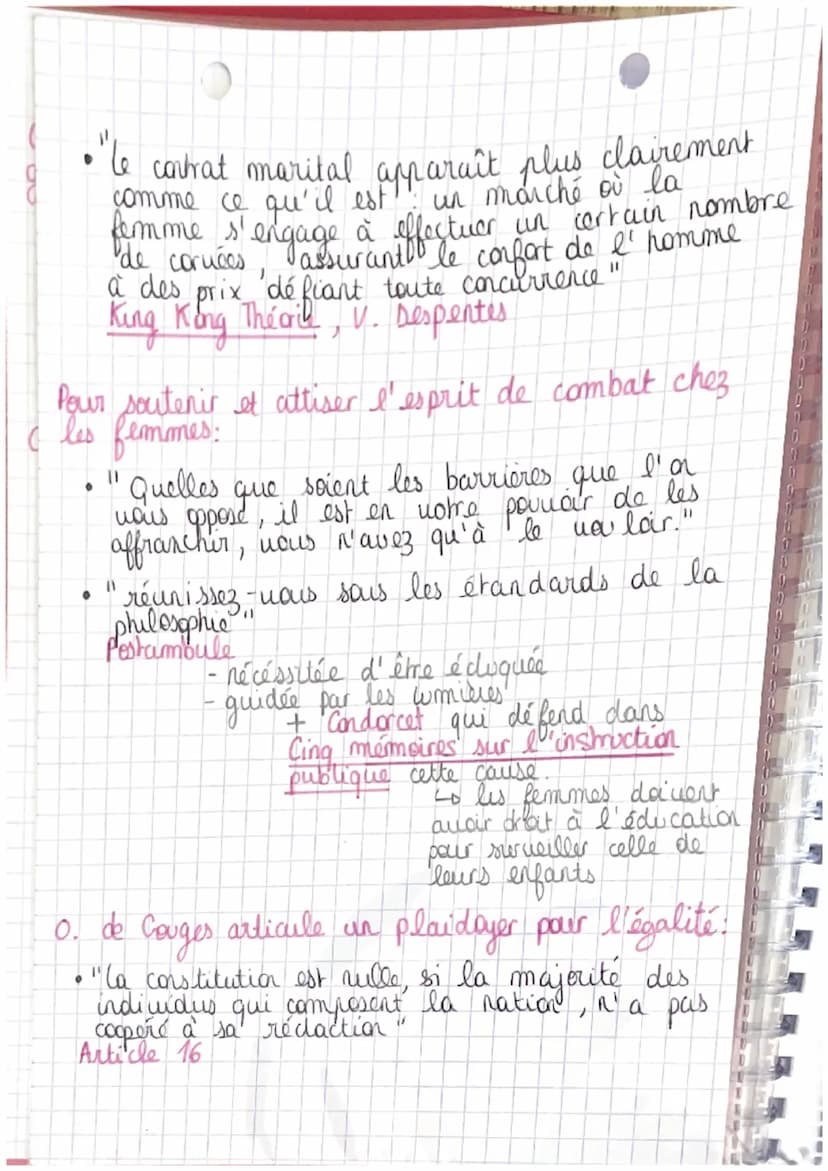 • "le contrat marital apparaît plus clairement
comme ce qu'il est : un marché où la
femme s'engage à effectuer un certain nombre
de corvées, assurant le confort de l'homme
à des prix défiant toute concurrence"
King Kong Théorie, V. Despentes
Pour soutenir et attiser l'esprit de combat chez
les femmes:
• "Quelles que soient les barrières que l'on
vous oppose, il est en votre pouvoir de les
affranchir, vous n'avez qu'à le vouloir."
• "réunissez-vous sous les étandards de la
philosophie"
Postambule
- nécéssitée d'être éduquée
- guidée par les lumières
+ Condorcet qui défend dans
Cinq mémoires sur l'instruction
publique cette cause.
↳ les femmes doivent
avoir droit à l'éducation
pour surveiller celle de
leurs enfants
O. de Gouges articule un plaidoyer pour l'égalité:
• "La constitution est nulle, si la majorité des
individus qui composent la nation, n'a pas
coopéré à sa rédaction"
Article 16